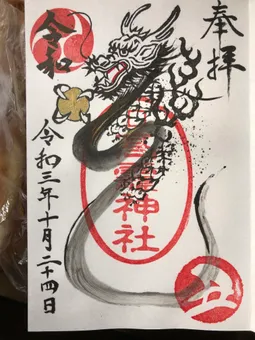 奉拝
令和
神社
令和三年十月二十四日
丑